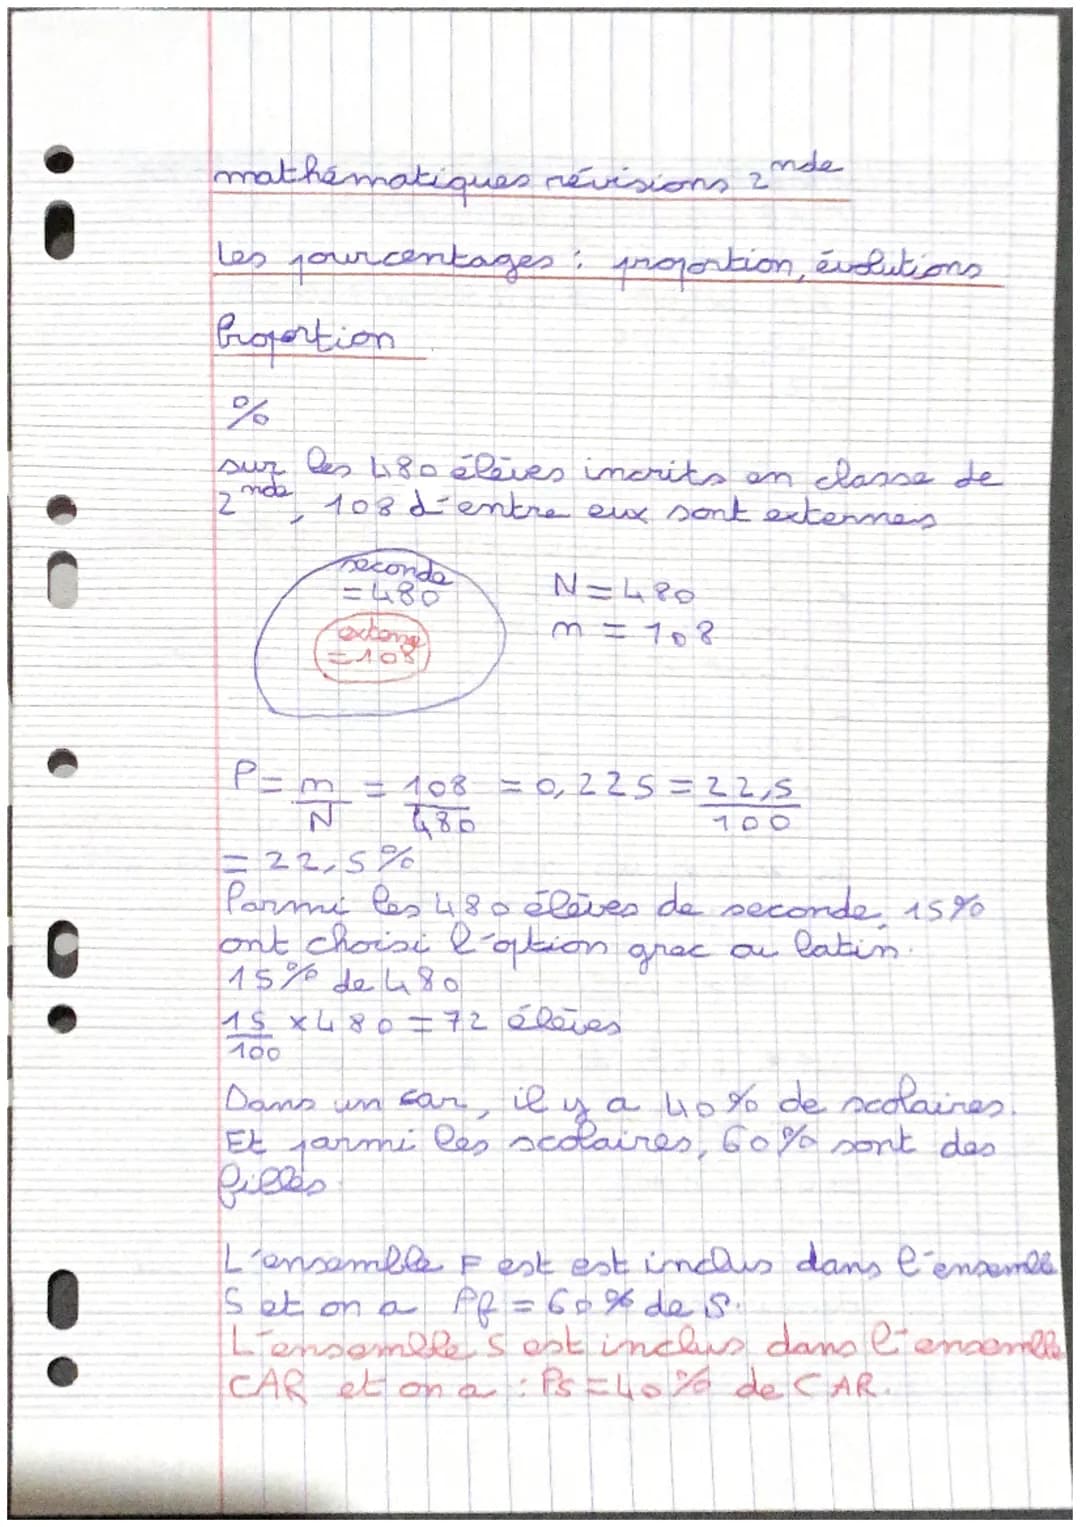 mathématiques révisions 2nde
Les pourcentages : proportion, évolutions
Proportion
%
sur les 480 élèves incrits en classe de
2nde, 108 d'entre eux sont externes
seconde
=480
externe
=108
N=480
n=108
P= n/N = 108/480 = 0,225 = 22,5/100
= 22,5%
Parmi les 480 élèves de seconde, 15%
ont choisi l'option grec ou latin.
15% de 480
15/100 x 480 = 72 élèves
Dans un car, il y a 40% de scolaires.
Et parmi les scolaires, 60% sont des
filles
L'ensemble F est est inclus dans l'ensemble
S et on a Pf = 60% de S.
L'ensemble S est inclus dans l'ensemble
CAR et on a : Ps = 40% de CAR.